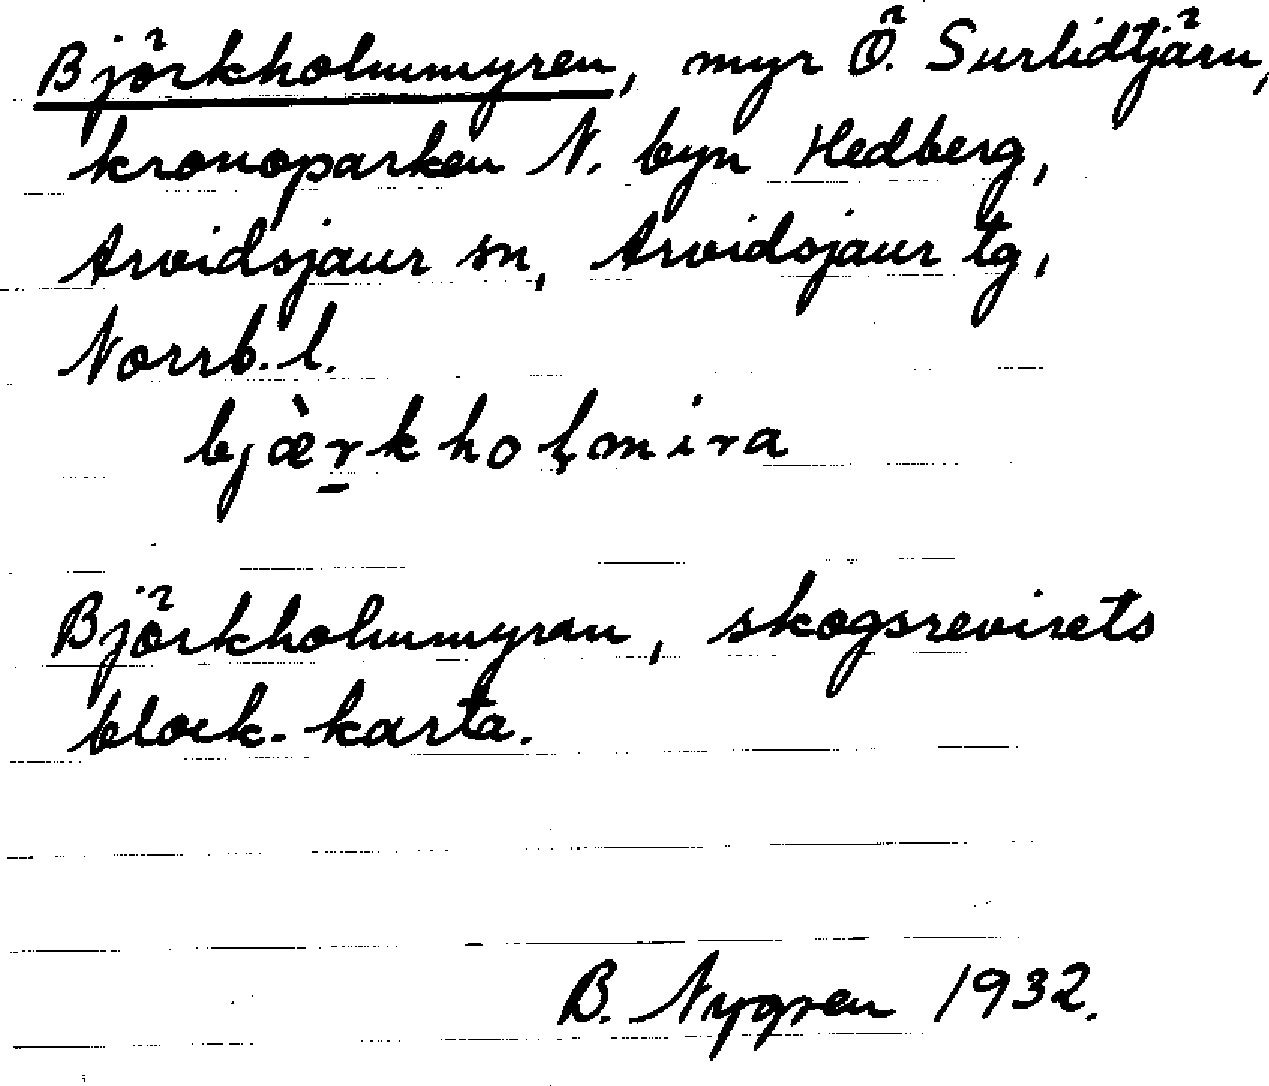 Björkholmmyren, myr Ö. Surlidtjärn,
kronoparken N. byn Hedberg,
Arvidsjaur sn, Arvidsjaur tg,
Norrb. l.
bjæ̀r̠khol̡mira
Björkholmmyran, skogsrevirets
block-karta.
B. Nygren 1932.